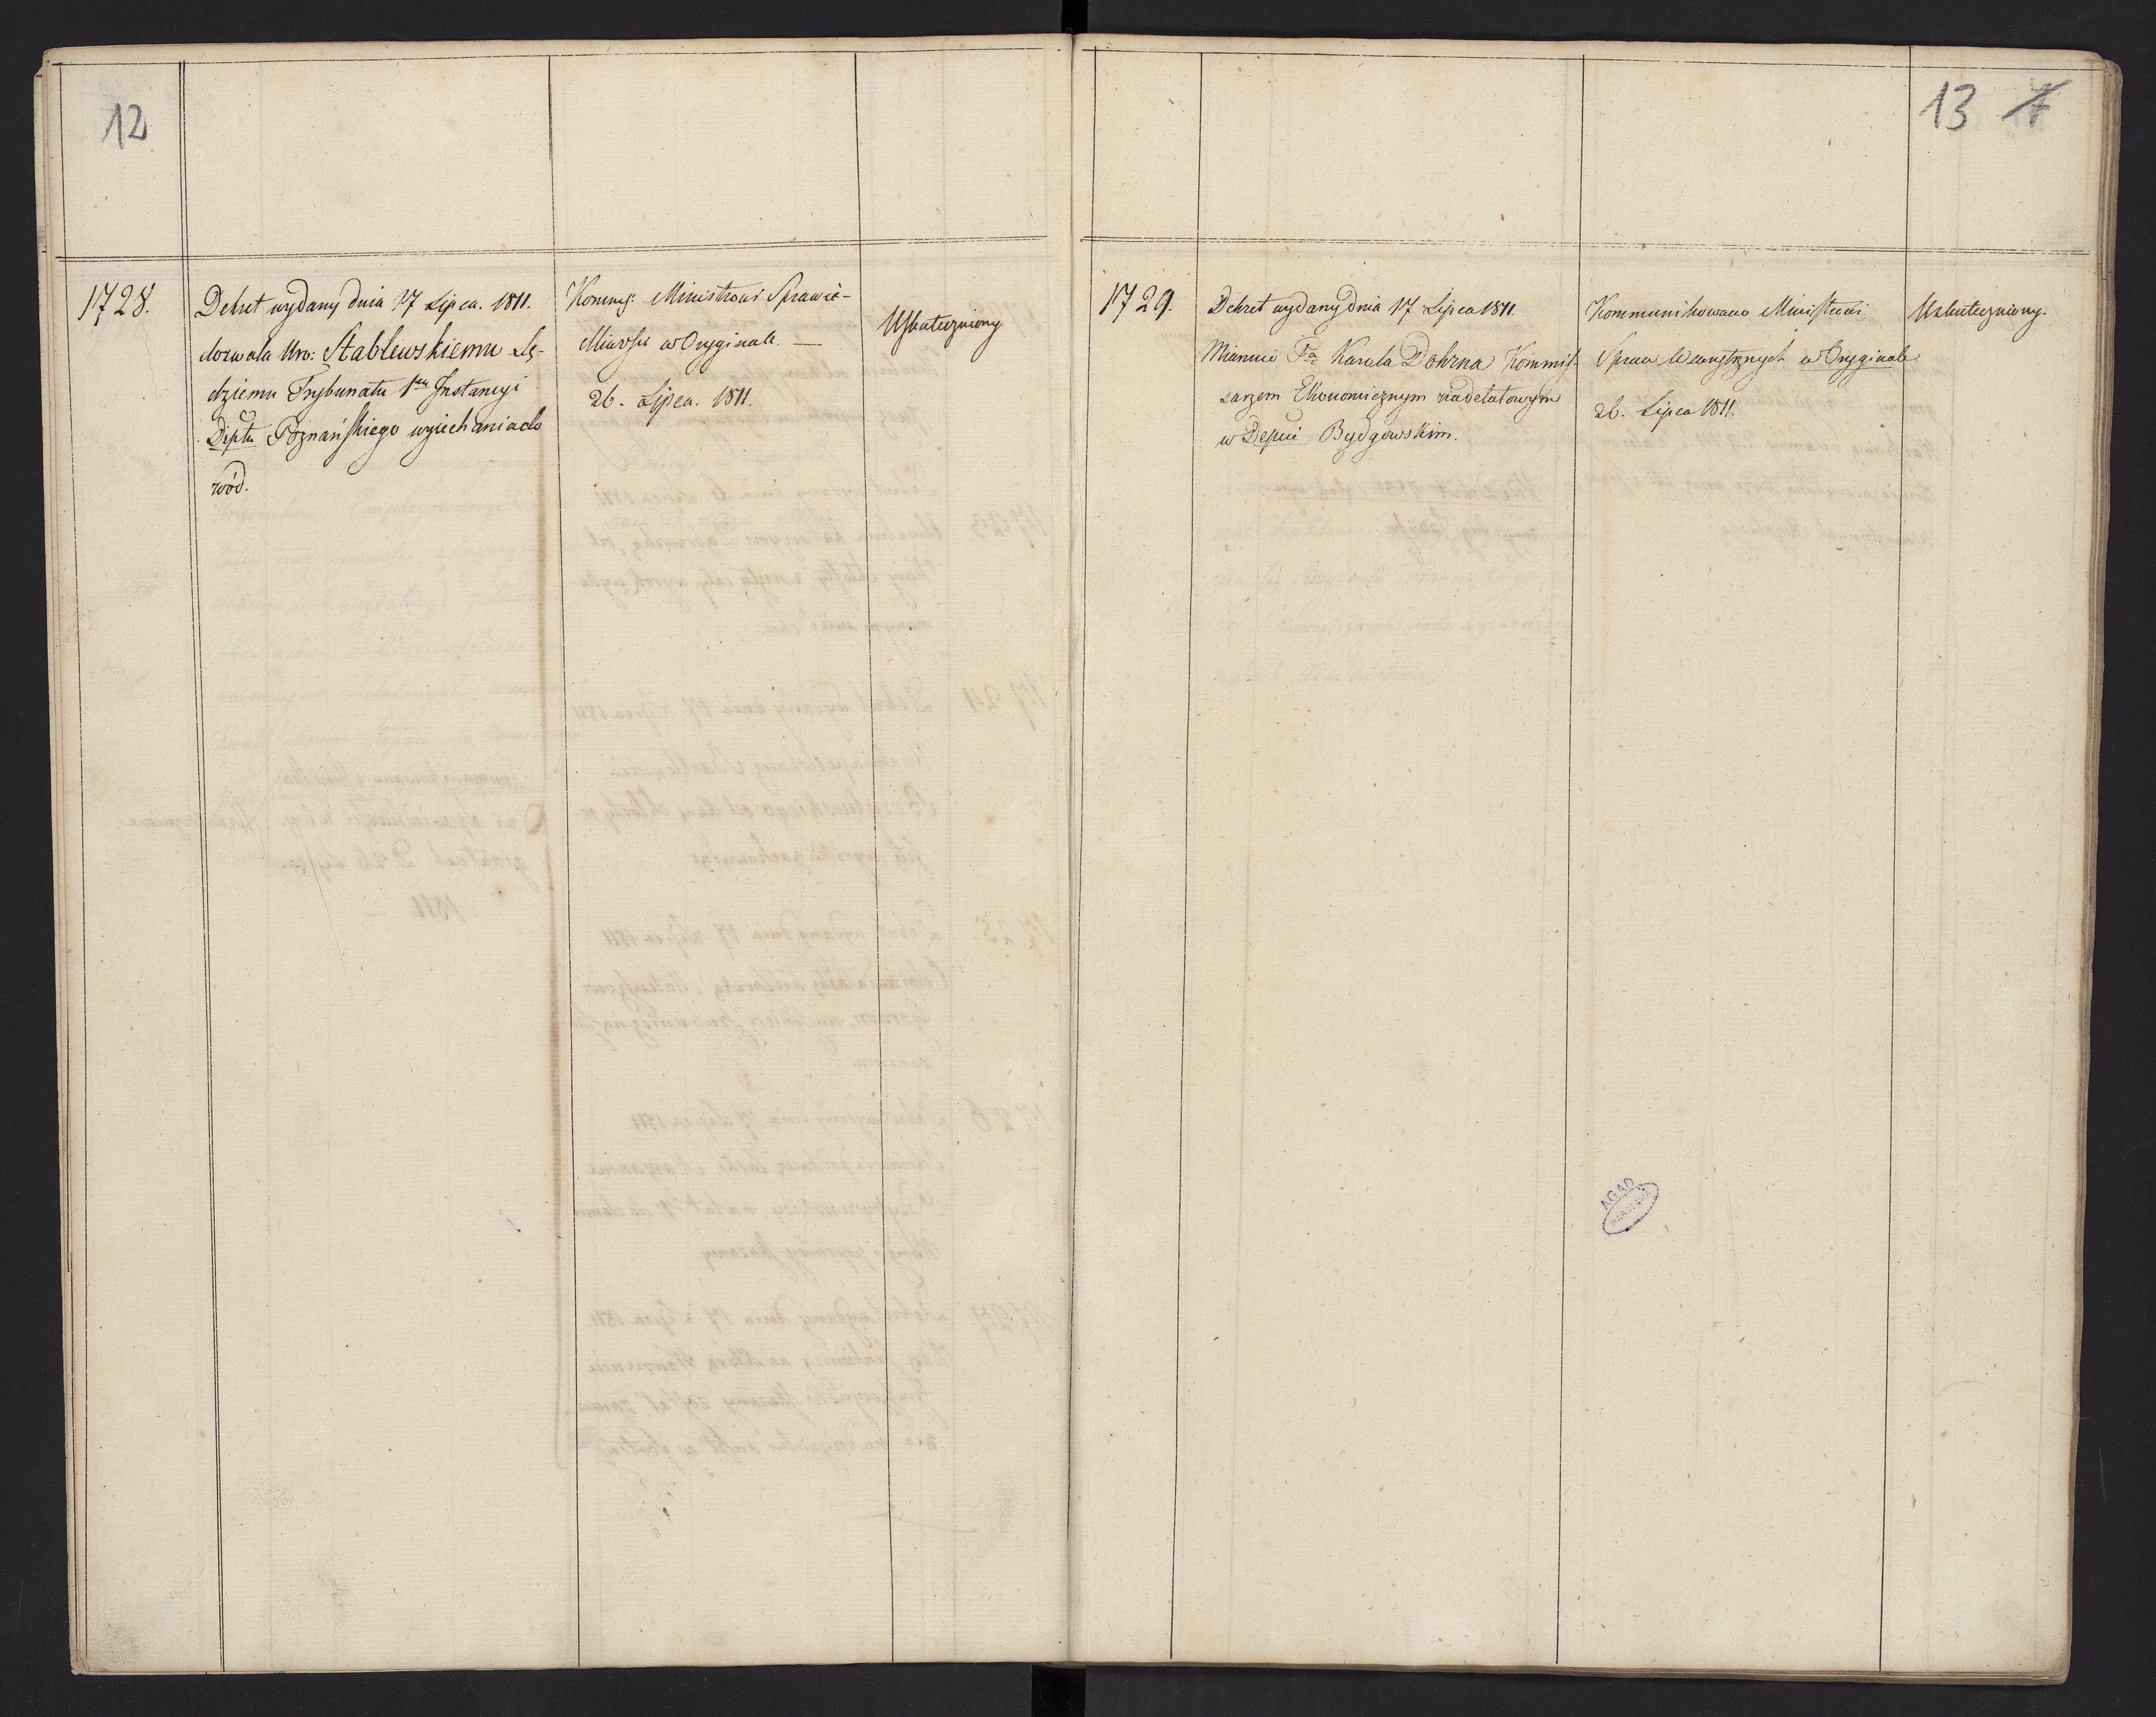 12
1728.
Dekret wydany dnia 17 Lipca. 1811.
dozwala Uro: Stablewskiemu Sę-
dziemu Trybunału 1ey Instancyi
Diptu Poznańskiego wyiechania do
wód.
Kommu: Ministrowi Sprawie-
dliwości w Oryginale. —
26. Lipca. 1811.
Uskuteczniony
13
1729.
Dekret wydany dnia 17 Lipca 1811.
Mianuie Pa Karola Dohrna Kommis-
sarzem Ekonomicznym nadetatowym
w Depcie Bydgowskim.
Kommunikowano Ministrowi
Spraw Wewnętrznych w Oryginale
26. Lipca 1811.
Uskuteczniony.
AGAD